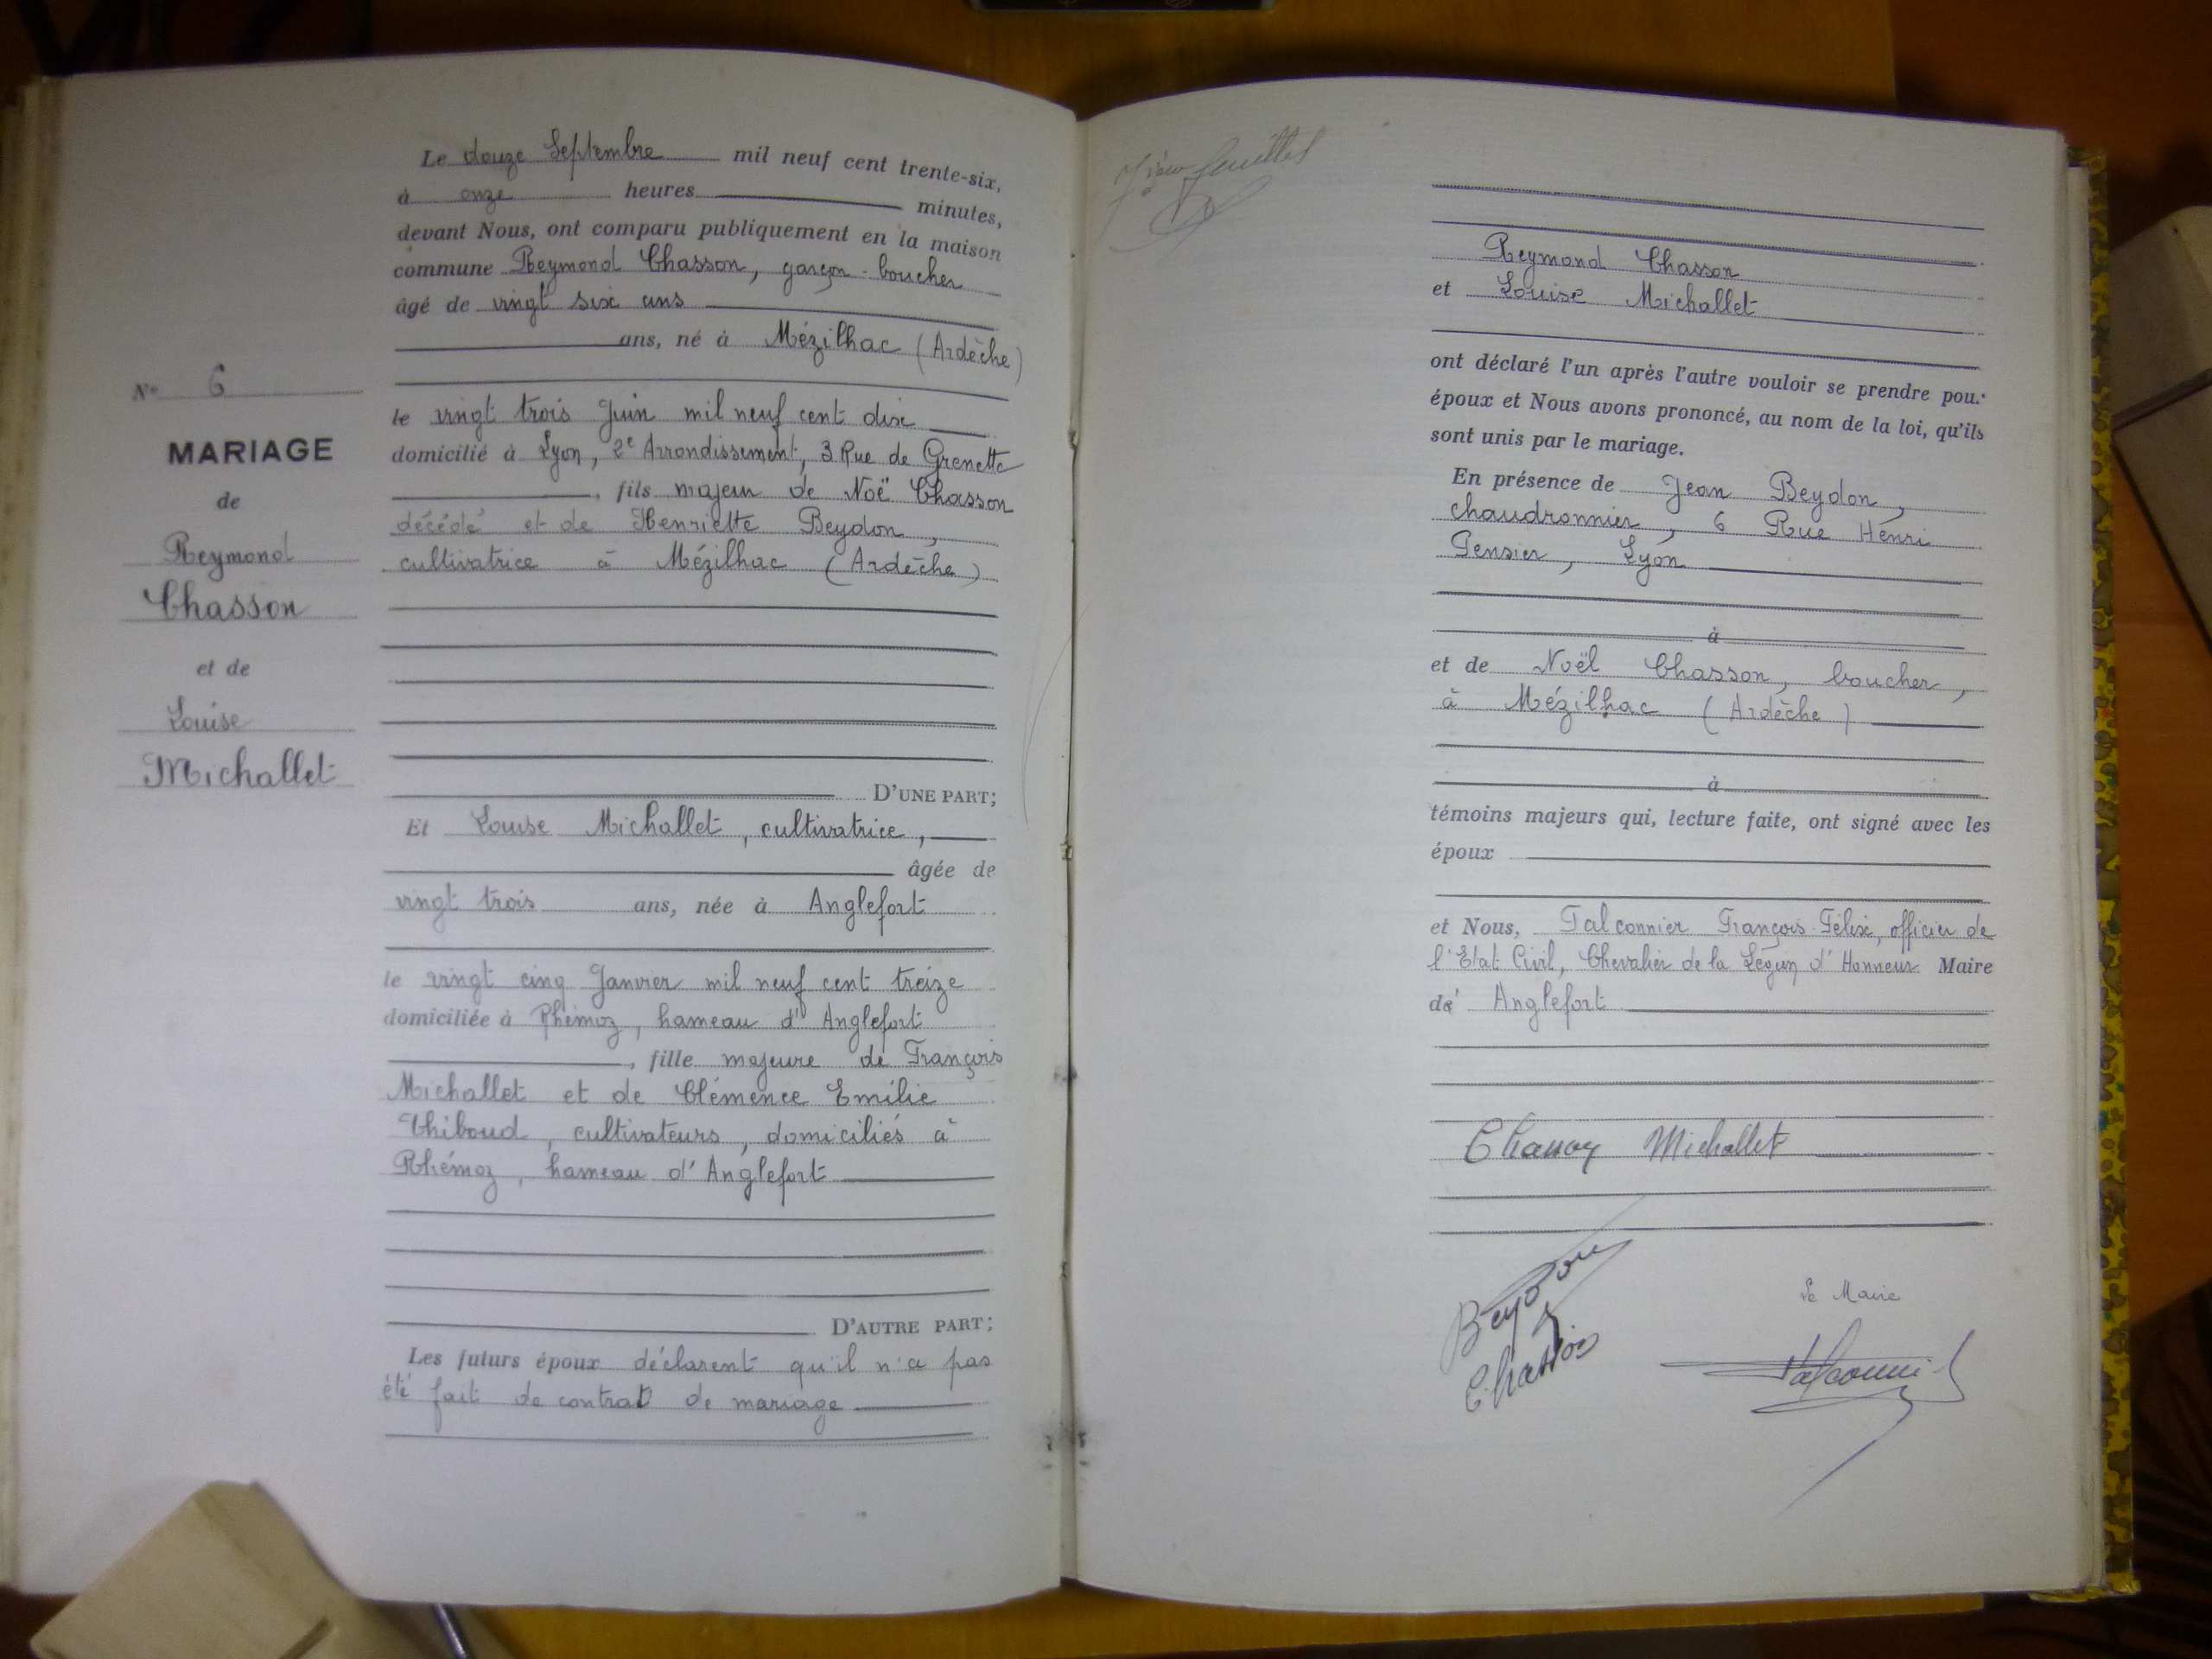 Le douze Septembre mil neuf cent trente-six,
à onze heures minutes,
devant Nous, ont comparu publiquement en la maison
commune Reymond Chasson, garçon-boucher
âgé de vingt six ans
ans, né à Mézilhac (Ardèche)
le vingt trois Juin mil neuf cent dix
domicilié à Lyon, 2e Arrondissement, 3 Rue de Grenette
, fils majeur de Noë Chasson
décédé et de Henriette Beydon,
cultivatrice à Mézilhac (Ardèche)
D'UNE PART;
Et Louise Michallet, cultivatrice,
âgée de
vingt trois ans, née à Anglefort
le vingt cinq Janvier mil neuf cent treize
domiciliée à Rhémoz, hameau d'Anglefort
, fille majeure de François
Michallet et de Clémence Emilie
Thiboud, cultivateurs, domiciliés à
Rhémoz, hameau d'Anglefort
D'AUTRE PART;
Les futurs époux déclarent qu'il n'a pas
été fait de contrat de mariage
No 6
MARIAGE
de
Reymond
Chasson
et de
Louise
Michallet
feuillet
Reymond Chasson
et Louise Michallet
ont déclaré l'un après l'autre vouloir se prendre pour
époux et Nous avons prononcé, au nom de la loi, qu'ils
sont unis par le mariage.
En présence de Jean Beydon,
chaudronnier, 6 Rue Henri
Pensier, Lyon
à
et de Noël Chasson, boucher,
à Mézilhac (Ardèche)
à
témoins majeurs qui, lecture faite, ont signé avec les
époux
et Nous, Falconnier François-Félix, officier de
l'Etat Civil, Chevalier de la Légion d'Honneur Maire
de Anglefort
Chasson Michallet
Beydon
Chasson
Le Maire
Falconnier